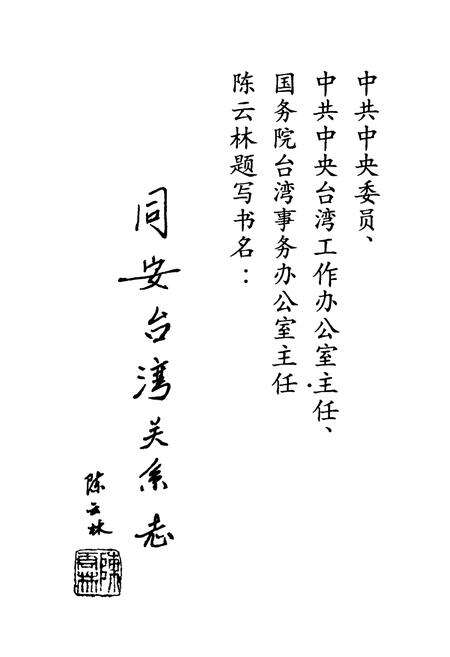 中共中央委员、
中共中央台湾工作办公室主任、
国务院台湾事务办公室主任
陈云林题写书名：
同安台湾关系志
陈云林
陈云林